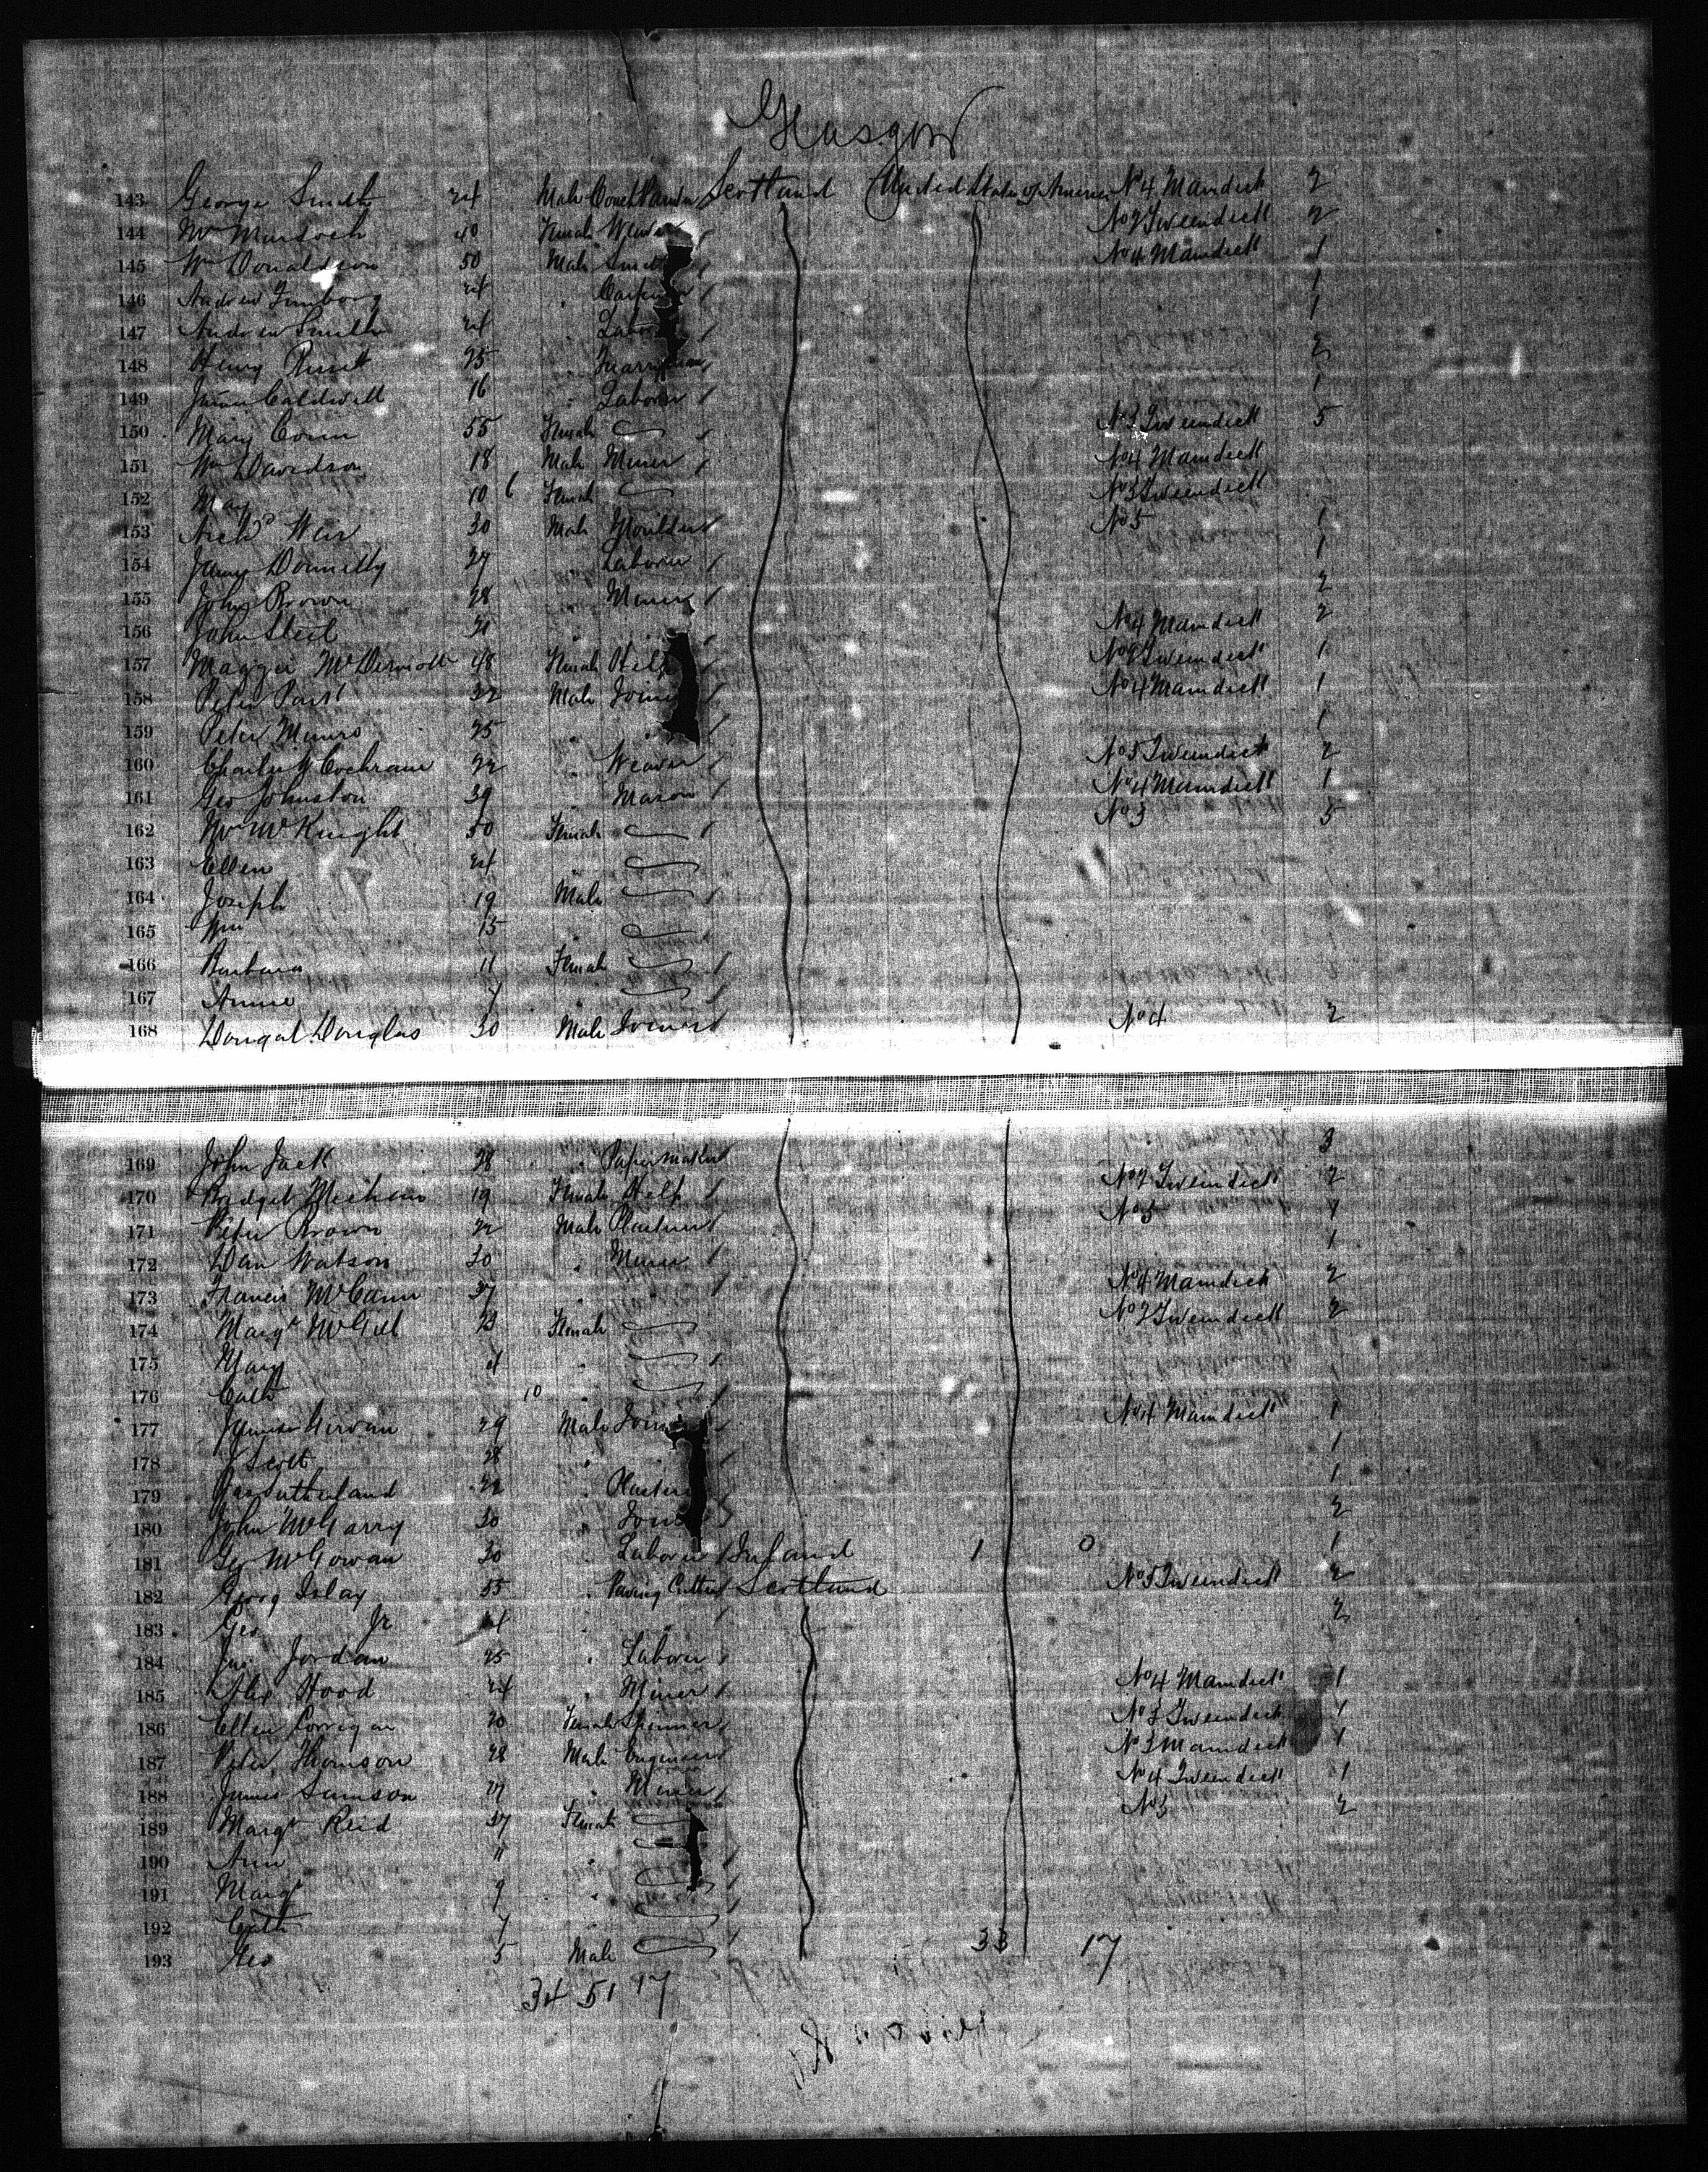 Glasgow
143 George Smith 24 Male Scotland United States of America No 4 Maindeck 2
144 Mrs Murdoch 40 Female Weaver No 2 Tweendeck 2
145 Wm Donaldson 50 Male Smith No 4 Maindeck 1
146 Andrew 24 " 1
147 Andrew Smith 24 " Labor 1
148 Henry 25 " 2
149 Caldwell 16 " Laborer 1
150 Mary 55 Female No 3 Tweendeck 5
151 Wm Davidson 18 Male Miner No 4 Maindeck
152 May 10 6 Female No 3 Tweendeck
153 Archd Weir 30 Male Moulder No 5 1
154 James Donnelly 27 " Laborer 1
155 John Brown 28 " Miner 2
156 John Steel 21 " " No 4 Maindeck 2
157 Maggie McDermott 48 Female Help No 2 Tweendeck 1
158 Peter 32 Male Joiner No 4 Maindeck 1
159 Peter Munro 25 " " 1
160 Charles Cochrane 22 " Weaver No 5 Tweendeck 2
161 Geo Johnston 39 Mason No 4 Maindeck 1
162 Mrs McKnight 50 Female No 3 5
163 Ellen 24
164 Joseph 19 Male
165 Wm 15 "
166 Barbara 11 Female
167 Annie 7 "
168 Dougal Douglas 30 Male Joiner No 4 2
169 John Jack 28 " Papermaker 3
170 Bridget 19 Female Help No 2 Tweendeck 2
171 Peter Brown 22 Male Plasterer No 5 1
172 Dan Watson 30 " Miner 1
173 Francis McCann 37 " " No 4 Maindeck 2
174 Margt McGill 23 Female No 2 Tweendeck 2
175 Mary 4 "
176 Cath 10 "
177 James Girvan 29 Male Join No 4 Maindeck 1
178 J Scott 28 " 1
179 Sutherland 22 " Plaster 1
180 John McGarry 30 " Join 2
181 Geo McGowan 30 " Laborer Ireland 1 0 1
182 Georg Islay 55 " Paving Cutter Scotland No 5 Tweendeck 2
183 Geo Jr 24 " " 2
184 Jordan 25 " Laborer
185 Alex Hood 24 " Miner No 4 Maindeck 1
186 Ellen Corrigan 20 Female Spinner No 3 Tweendeck 1
187 Peter Thomson 28 Male Engineer No 3 Maindeck 1
188 James Samson 27 " Miner No 4 Tweendeck 1
189 Margt Reid 37 Female No 3 2
190 Ann 11 "
191 Margt 9 "
192 Cath 7
193 Geo 5 Male 33 17
34 51 17